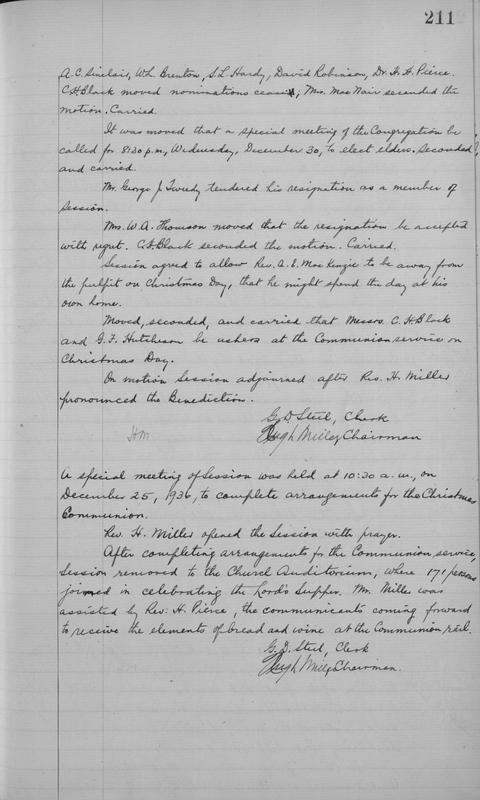 211
A. C. Sinclair, W. L. Brenton, S. L. Hardy, David Robinson, Dr. H. H. Pierce.
C H Black moved nominations cease; Mrs. MacNair seconded the
motion. Carried.
It was moved that a special meeting of the Congregation be
called for 8:30 p.m., Wednesday, December 30, to elect elders. Seconded,
and carried.
Mr. George J. Tweedy tendered his resignation as a member of
Session.
Mrs. W. A. Thomson moved that the resignation be accepted
with regret. C. H Black seconded the motion. Carried.
Session agreed to allow Rev. A. E. MacKenzie to be away from
the pulpit on Christmas Day, that he might spend the day at his
own home.
Moved, seconded, and carried that Messrs. C. H. Black
and G. F. Hutcheson be ushers at the Communion service on
Christmas Day.
On motion Session adjourned after Rev. H. Miller
pronounced the Benediction.
G. D. Steel, Clerk
HM Hugh Miller, Chairman
A special meeting of Session was held at 10:30 a.m., on
December 25, 1936, to complete arrangements for the Christmas
Communion.
Rev. H. Miller opened the Session with prayer.
After completing arrangements for the Communion service,
Session removed to the Church Auditorium, where 171 persons
joined in celebrating the Lord's Supper. Mr. Miller was
assisted by Rev. H. Pierce, the communicants coming forward
to receive the elements of bread and wine at the Communion rail.
G. D. Steel, Clerk
Hugh Miller, Chairman.